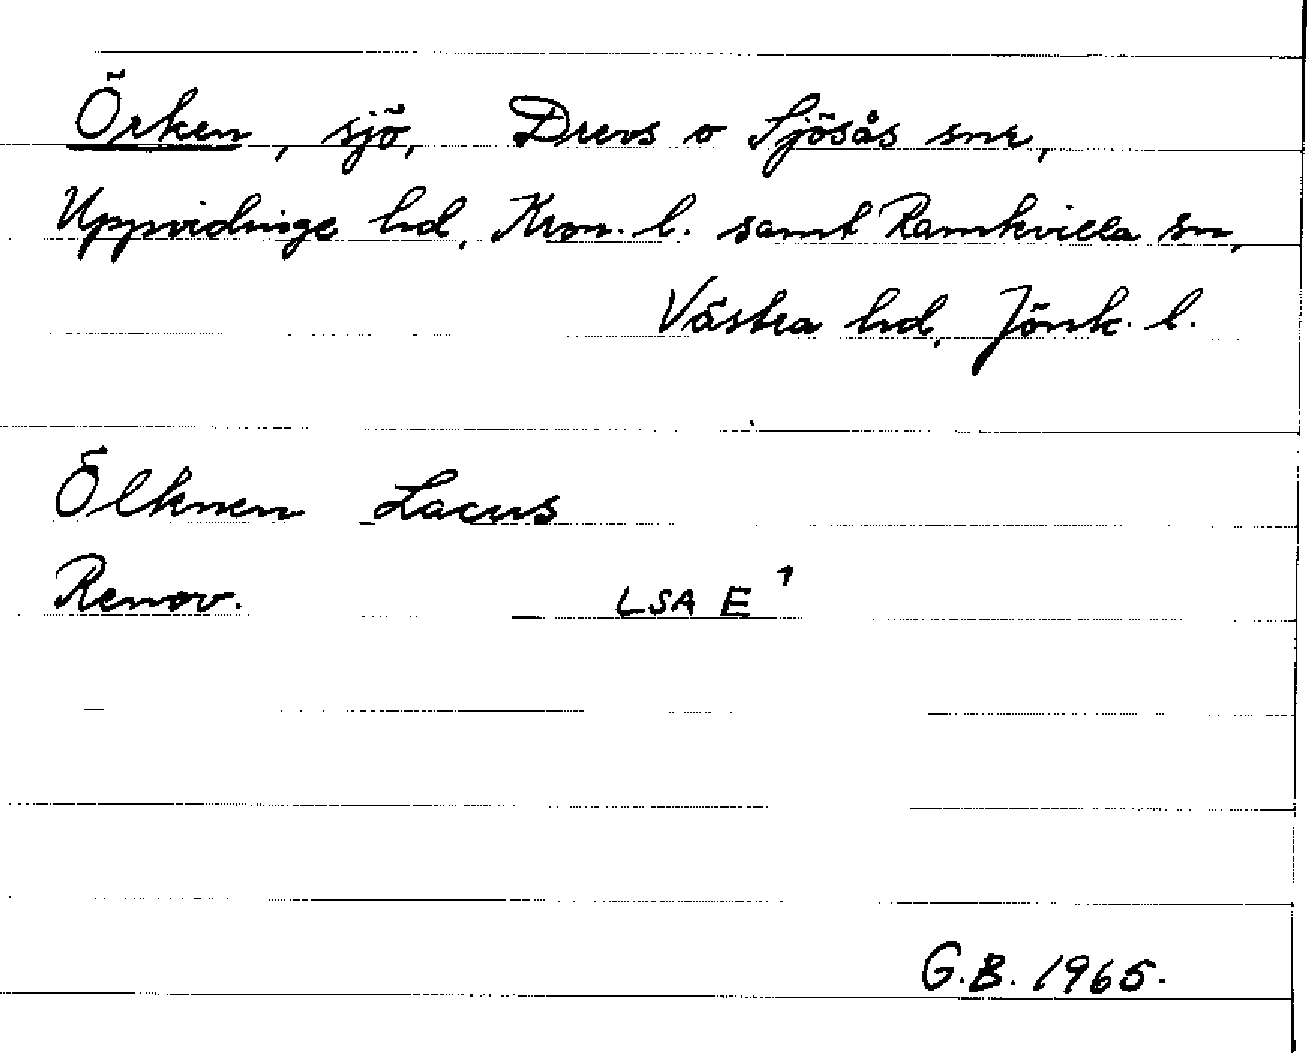 Örken, sjö, Drevs o Sjösås snr,
Uppvidinge hd, Kron. l. samt Ramkvilla sn,
Västra hd, Jönk. l.
Ölknen Lacus
Renov. LSA E 1
G.B. 1965.